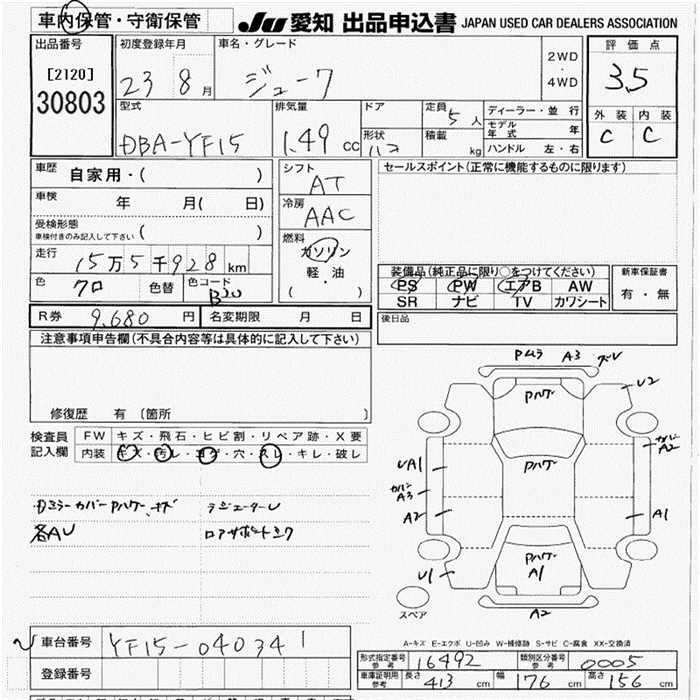 車内保管・守衛保管
JU 愛知 出品申込書 JAPAN USED CAR DEALERS ASSOCIATION
出品番号
[2120]
30803
初度登録年月
23 8月
車名・グレード
ジューク
2WD
・
4WD
評価点
3.5
外装 内装
C C
型式
DBA-YF15
排気量
1.49 cc
ドア
形状
ハコ
定員 5人
積載 kg
ディーラー・並行
モデル年式 年
ハンドル 左・右
車歴 自家用・( )
車検 年 月( 日)
受検形態
車検付きのみ記入して下さい ( )
走行 15万5千928km
色 クロ 色替 色コード
シフト
AT
冷房
AAC
燃料
ガソリン
軽・油
( )
セールスポイント(正常に機能するものに限ります)
装備品(純正品に限り○をつけてください)
PS PW エアB AW
SR ナビ TV カワシート
新車保証書
有・無
後日品
R券 9,680 円 名変期限 月 日
注意事項申告欄(不具合内容等は具体的に記入して下さい)
修復歴 有 〔箇所 〕
検査員記入欄
FW キズ・飛石・ヒビ割・リペア跡・X要
内装 キズ・汚レ・コゲ・穴・スレ・キレ・破レ
Dミラーカバー Pハゲ、キズ
各AU
ラジエーターU
ロアサポートミク
Pムラ A3 ズレ
U2
Pハゲ
カバーA2
Pハゲ
UA1
カバーA3
A2
A1
Pハゲ
A1
U1
A2
スペア
A-キズ E-エクボ U-凹み W-補修跡 S-サビ C-腐食 XX-交換済
車台番号 YF15-040341
登録番号
形式指定番号 参考 16492 類別区分番号 参考 0005
車庫証明用 参考 長さ 413 cm 幅 176 cm 高さ 156 cm